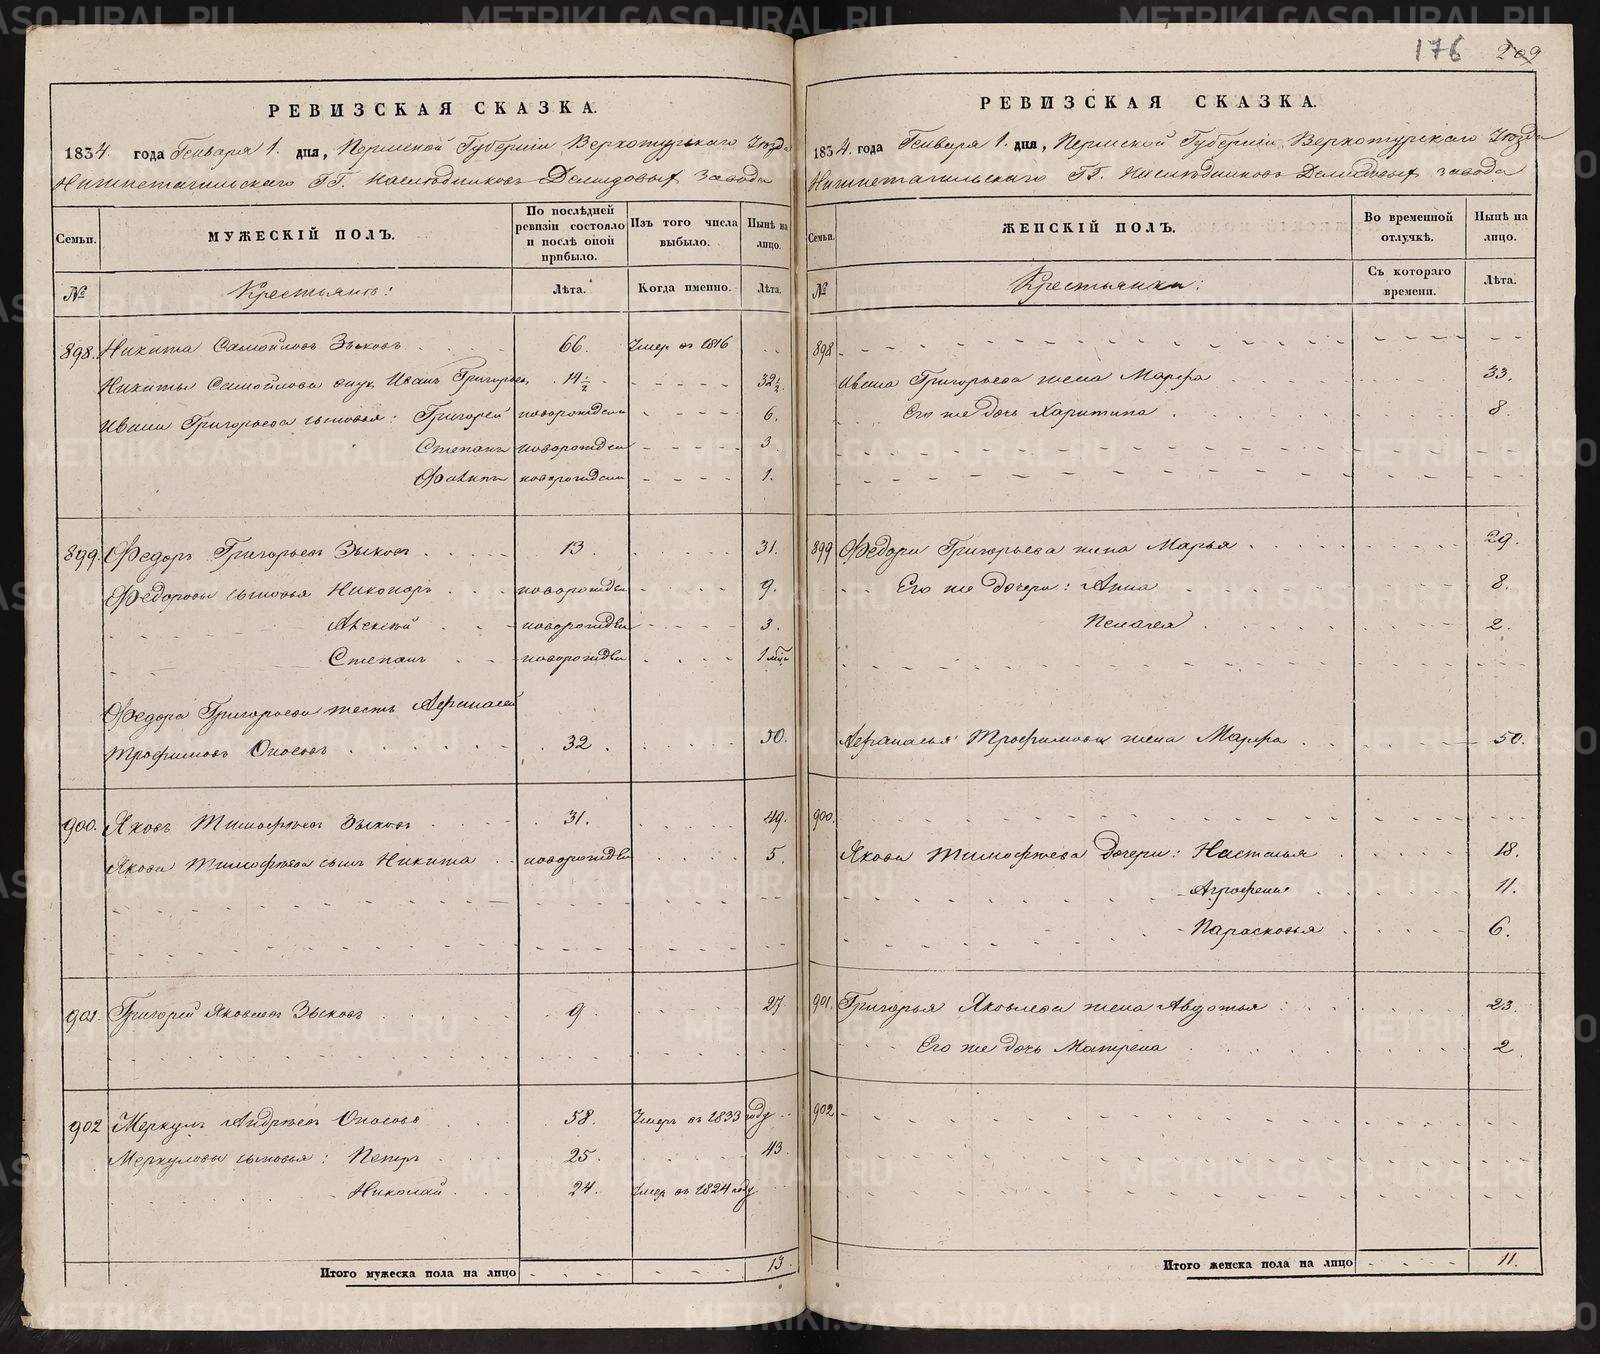 176 209
РЕВИЗСКАЯ СКАЗКА.
1834. года Генваря 1. дня, Пермской Губернiи Верхотурьскаго Уезда
Нижнетагильскаго ГГ. Наследниковъ Демидовыхъ завода
Семьи.
МУЖЕСКIЙ ПОЛЪ.
По послѣдней ревизiи состояло и послѣ оной прибыло.
Изъ того числа выбыло.
Нынѣ на лицо.
№
Крестьянъ:
Лѣта.
Когда именно.
Лѣта.
898. Никита Самойловъ Зыковъ 66. Умер въ 1816
Никиты Самойлова внукъ Иванъ Григорьевъ 14½ 32½
Ивана Григорьева сыновья: Григорей новорожден 6.
Степанъ новорожден 3
новорожден 1.
899. Федоръ Григорьевъ Зыковъ 13. 31.
Федоровы сыновья Никоноръ новорожден 9.
Алексей новорожден 3.
Степанъ новорожден 1 мѣц
Федора Григорьева тесть Афанасей
Трофимовъ Оносовъ 32 50.
900. Яковъ Тимофѣевъ Зыковъ 31. 49.
Якова Тимофѣева сынъ Никита новорожден 5.
901. Григорей Яковлевъ Зыковъ 9 27
902 Меркулъ Андрѣевъ Оносовъ 58. Умеръ въ 1833 году
Меркуловы сыновья: Петръ 25. 43
Николай 24. Умер въ 1824 году
Итого мужеска пола на лицо 13.
РЕВИЗСКАЯ СКАЗКА.
1834. года Генваря 1. дня, Пермской Губернiи Верхотурскаго Уезда
Нижнетагильскаго ГГ. Наслѣдниковъ Демидовыхъ завода
Семьи.
ЖЕНСКIЙ ПОЛЪ.
Во временной отлучкѣ.
Нынѣ на лицо.
№
Крестьянки:
Съ котораго времени.
Лѣта.
898
Ивана Григорьева жена Марфа 33.
Его же дочь Харитина 8.
899 Федора Григорьева жена Марья 29.
Его же дочери: Анна 8.
Пелагея 2.
Афанасья Трофимова жена Марфа 50.
900.
Якова Тимофѣева дочери: Настасья 18.
Аграфена 11.
Парасковья 6.
901. Григорья Яковлева жена Авдотья 23.
Его же дочь Матрена 2.
902
Итого женска пола на лицо 11.
METRIKI.GASO-URAL.RU